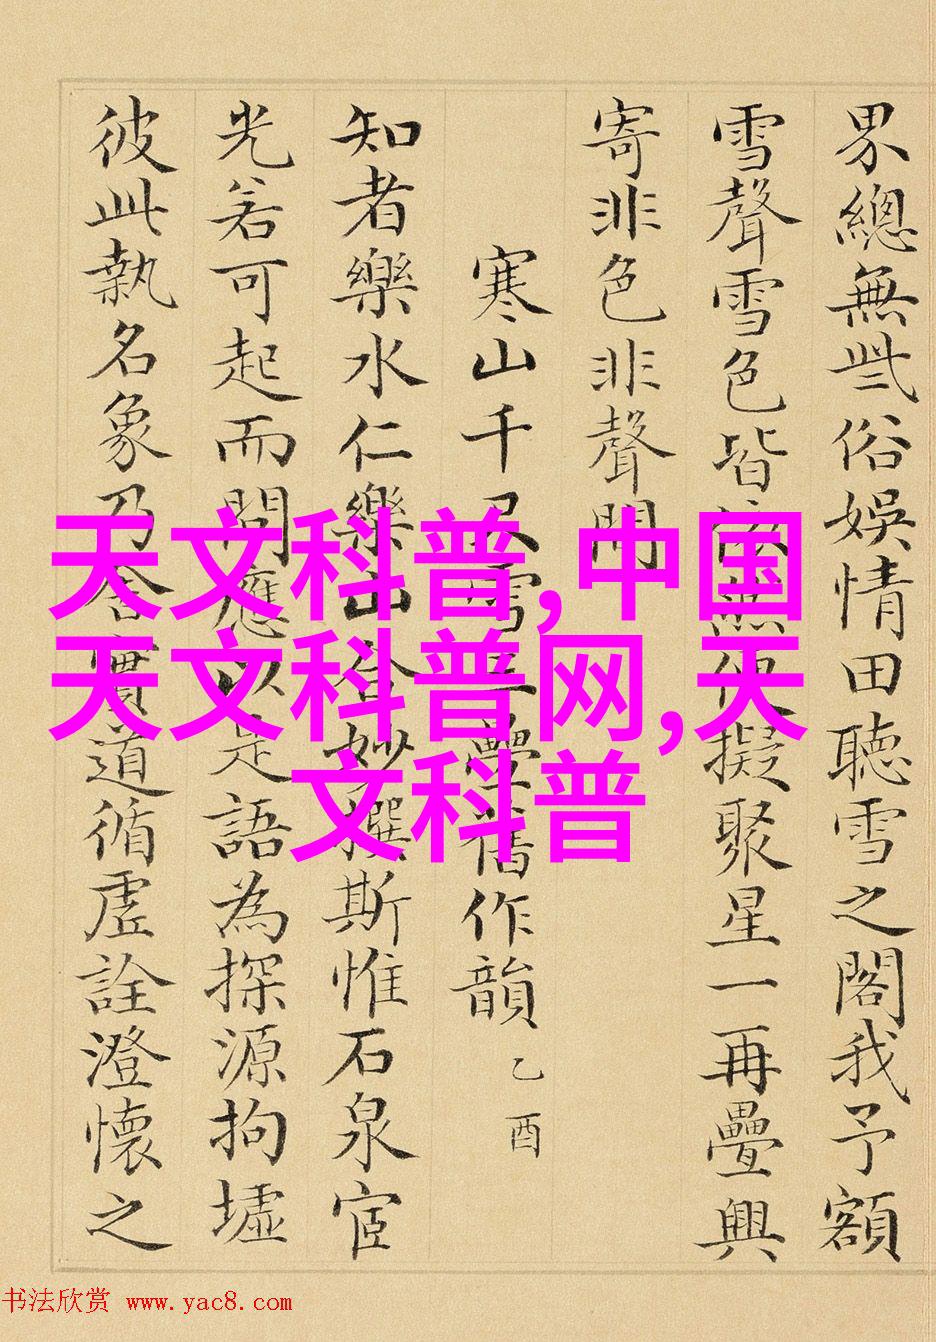 界總無些俗娛情田聽雪之閣我予額
雪聲雪色皆 無 擬聚星一再疊興
寄非色非聲聞
寒山千尺雪 疊舊作韻 乙酉
知者樂水仁樂山 妙 撰斯惟石泉宦
光若可起而問應以是語為探源拘墟
彼此執名象乃 實道循虛詮澄懷之
天文科普,中国
天文科普网,天
文科普
书法欣赏 www.yac8.com